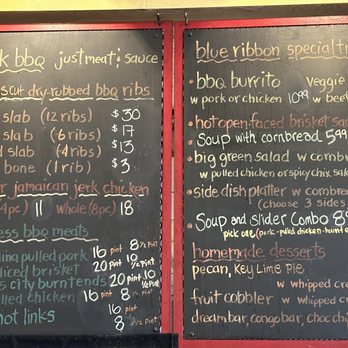 bbq just meat & sauce
cut dry-rubbed bbq ribs
slab (12 ribs) $30
slab (6 ribs) $17
slab (4 ribs) $13
bone (1 rib) $3
jamaican jerk chicken
4pc) 11 whole (8pc) 18
bbq meats
pulled pork 16 pint 8 ½ pint
brisket 20 pint 10 ½ pint
city burntends 20 pint 10 ½ pint
chicken 16 pint 8 ½ pint
hot links 16 pint
8 ½ pint
blue ribbon specialty
• bbq burrito veggie
w pork or chicken 10.99 w bee
• hot open-faced brisket sa
soup with cornbread 5.99
• big green salad w corn
w pulled chicken or spicy chix sala
• side dish platter w cornbrea
(choose 3 sides
• Soup and Slider Combo 8
pick one (pork-pulled chicken-
homemade desserts
pecan, Key Lime Pie
w whipped cre
fruit cobbler w whipped cre
dream bar, congo bar, choc chi